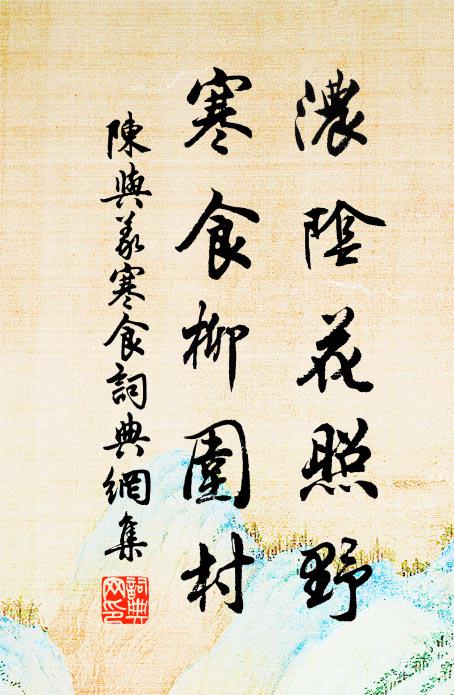 濃陰花照野
寒食柳圍村
陳與義寒食詞典網集
詞典網印